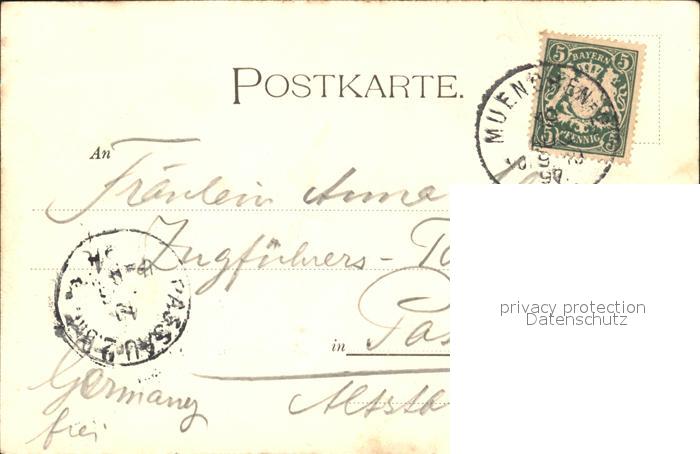 POSTKARTE.
5 BAYERN 5
5 PFENNIG 5
MUENCHEN
An Fräulein Anna
Zugführers-
in
PASSAU 2
Altsta
Germany
frei
privacy protection
Datenschutz